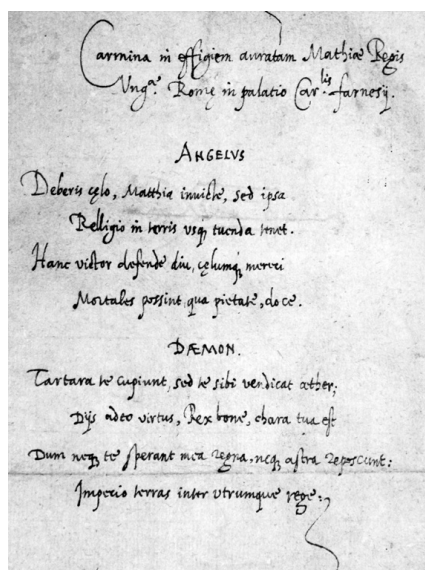 Carmina in effigiem auratam Mathiæ Regis
Ungæ. Romę in palatio Carlis. farnesij.
ANGELVS
Deberis cęlo, Matthia invicte, sed ipsa
Relligio in terris usq; tuenda tenet.
Hanc victor defende diu, cęlumq; mereri
Mortales possint, qua pietate, doce.
DÆMON.
Tartara te cupiunt, sed te sibi vendicat æther;
Dijs adeo virtus, Rex bone, chara tua est
Dum neq; te sperant mea regna, neq; astra reposcunt:
Imperio terras inter utrumque rege: